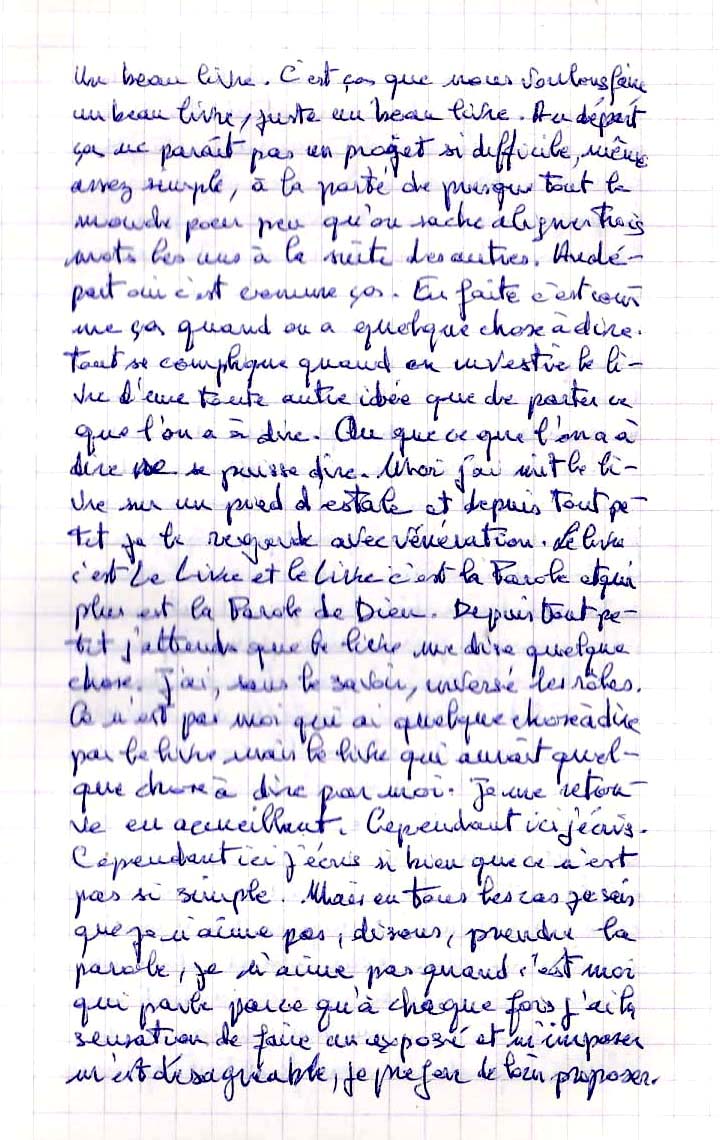 Un beau livre. C'est ça que nous voulons faire
un beau livre, juste un beau livre. Au départ
ça ne paraît pas un projet si difficile, même
assez simple, à la porté de presque tout le
monde pour peu qu'on sache aligner trois
mots les uns à la suite des autres. Au dé-
part oui c'est comme ça. En faite c'est com
me ça quand on a quelque chose à dire.
Tout se complique quand on investie le li-
vre d'une toute autre idée que de porter ce
que l'on a à dire. Ou que ce que l'on a à
dire ne se puisse dire. Moi j'ai mit le li-
vre sur un pied d'estale et depuis tout pe-
tit je le regarde avec vénération. Le livre
c'est Le Livre et le Livre c'est la Parole et qui
plus est la Parole de Dieu. Depuis tout pe-
tit j'attends que le livre me dise quelque
chose. J'ai, sans le savoir, inversé les rôles.
Ce n'est pas moi qui ai quelque chose à dire
par le livre mais le livre qui aurait quel-
que chose à dire par moi. Je me retrou-
ve en accueillant. Cependant ici j'écris.
Cependant ici j'écris si bien que ce n'est
pas si simple. Mais en tous les cas je sais
que je n'aime pas, disons, prendre la
parole, je n'aime pas quand c'est moi
qui parle parce qu'à chaque fois j'ai la
sensation de faire un exposé et m'imposer
m'est désagréable, je préfère de loin proposer.